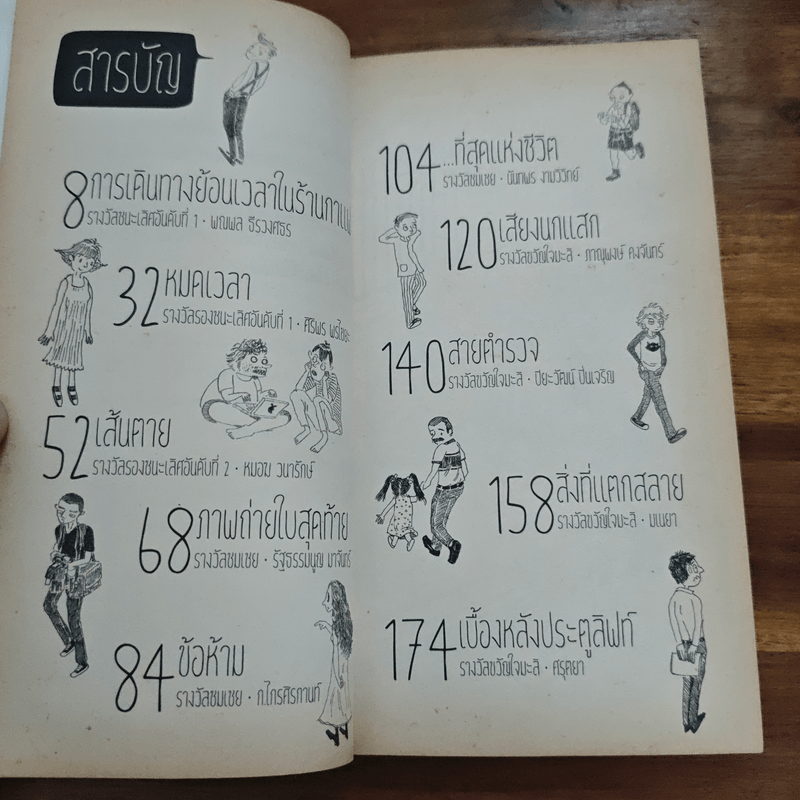 สารบัญ
8 การเดินทางย้อนเวลาในร้านกาแฟ
รางวัลชนะเลิศอันดับที่ 1 • พณพล ธีรวงศธร
32 หมดเวลา
รางวัลรองชนะเลิศอันดับที่ 1 • ศิริพร
52 เส้นตาย
รางวัลรองชนะเลิศอันดับที่ 2 • หมอฆ วนารักษ์
68 ภาพถ่ายใบสุดท้าย
รางวัลชมเชย • รัฐธรรมนูญ มาจันทร์
84 ข้อห้าม
รางวัลชมเชย • ก.ไกรศิรกานท์
104 ...ที่สุดแห่งชีวิต
รางวัลชมเชย • นันทพร งามวิวิทย์
120 เสียงนกแสก
รางวัลขวัญใจมะลิ • ภาณุพงษ์ คงจันทร์
140 สายตำรวจ
รางวัลขวัญใจมะลิ • ปิยะวัฒน์ ปิ่นเจริญ
158 สิ่งที่แตกสลาย
รางวัลขวัญใจมะลิ • มเนยา
174 เบื้องหลังประตูลิฟท์
รางวัลขวัญใจมะลิ • ศรุตยา